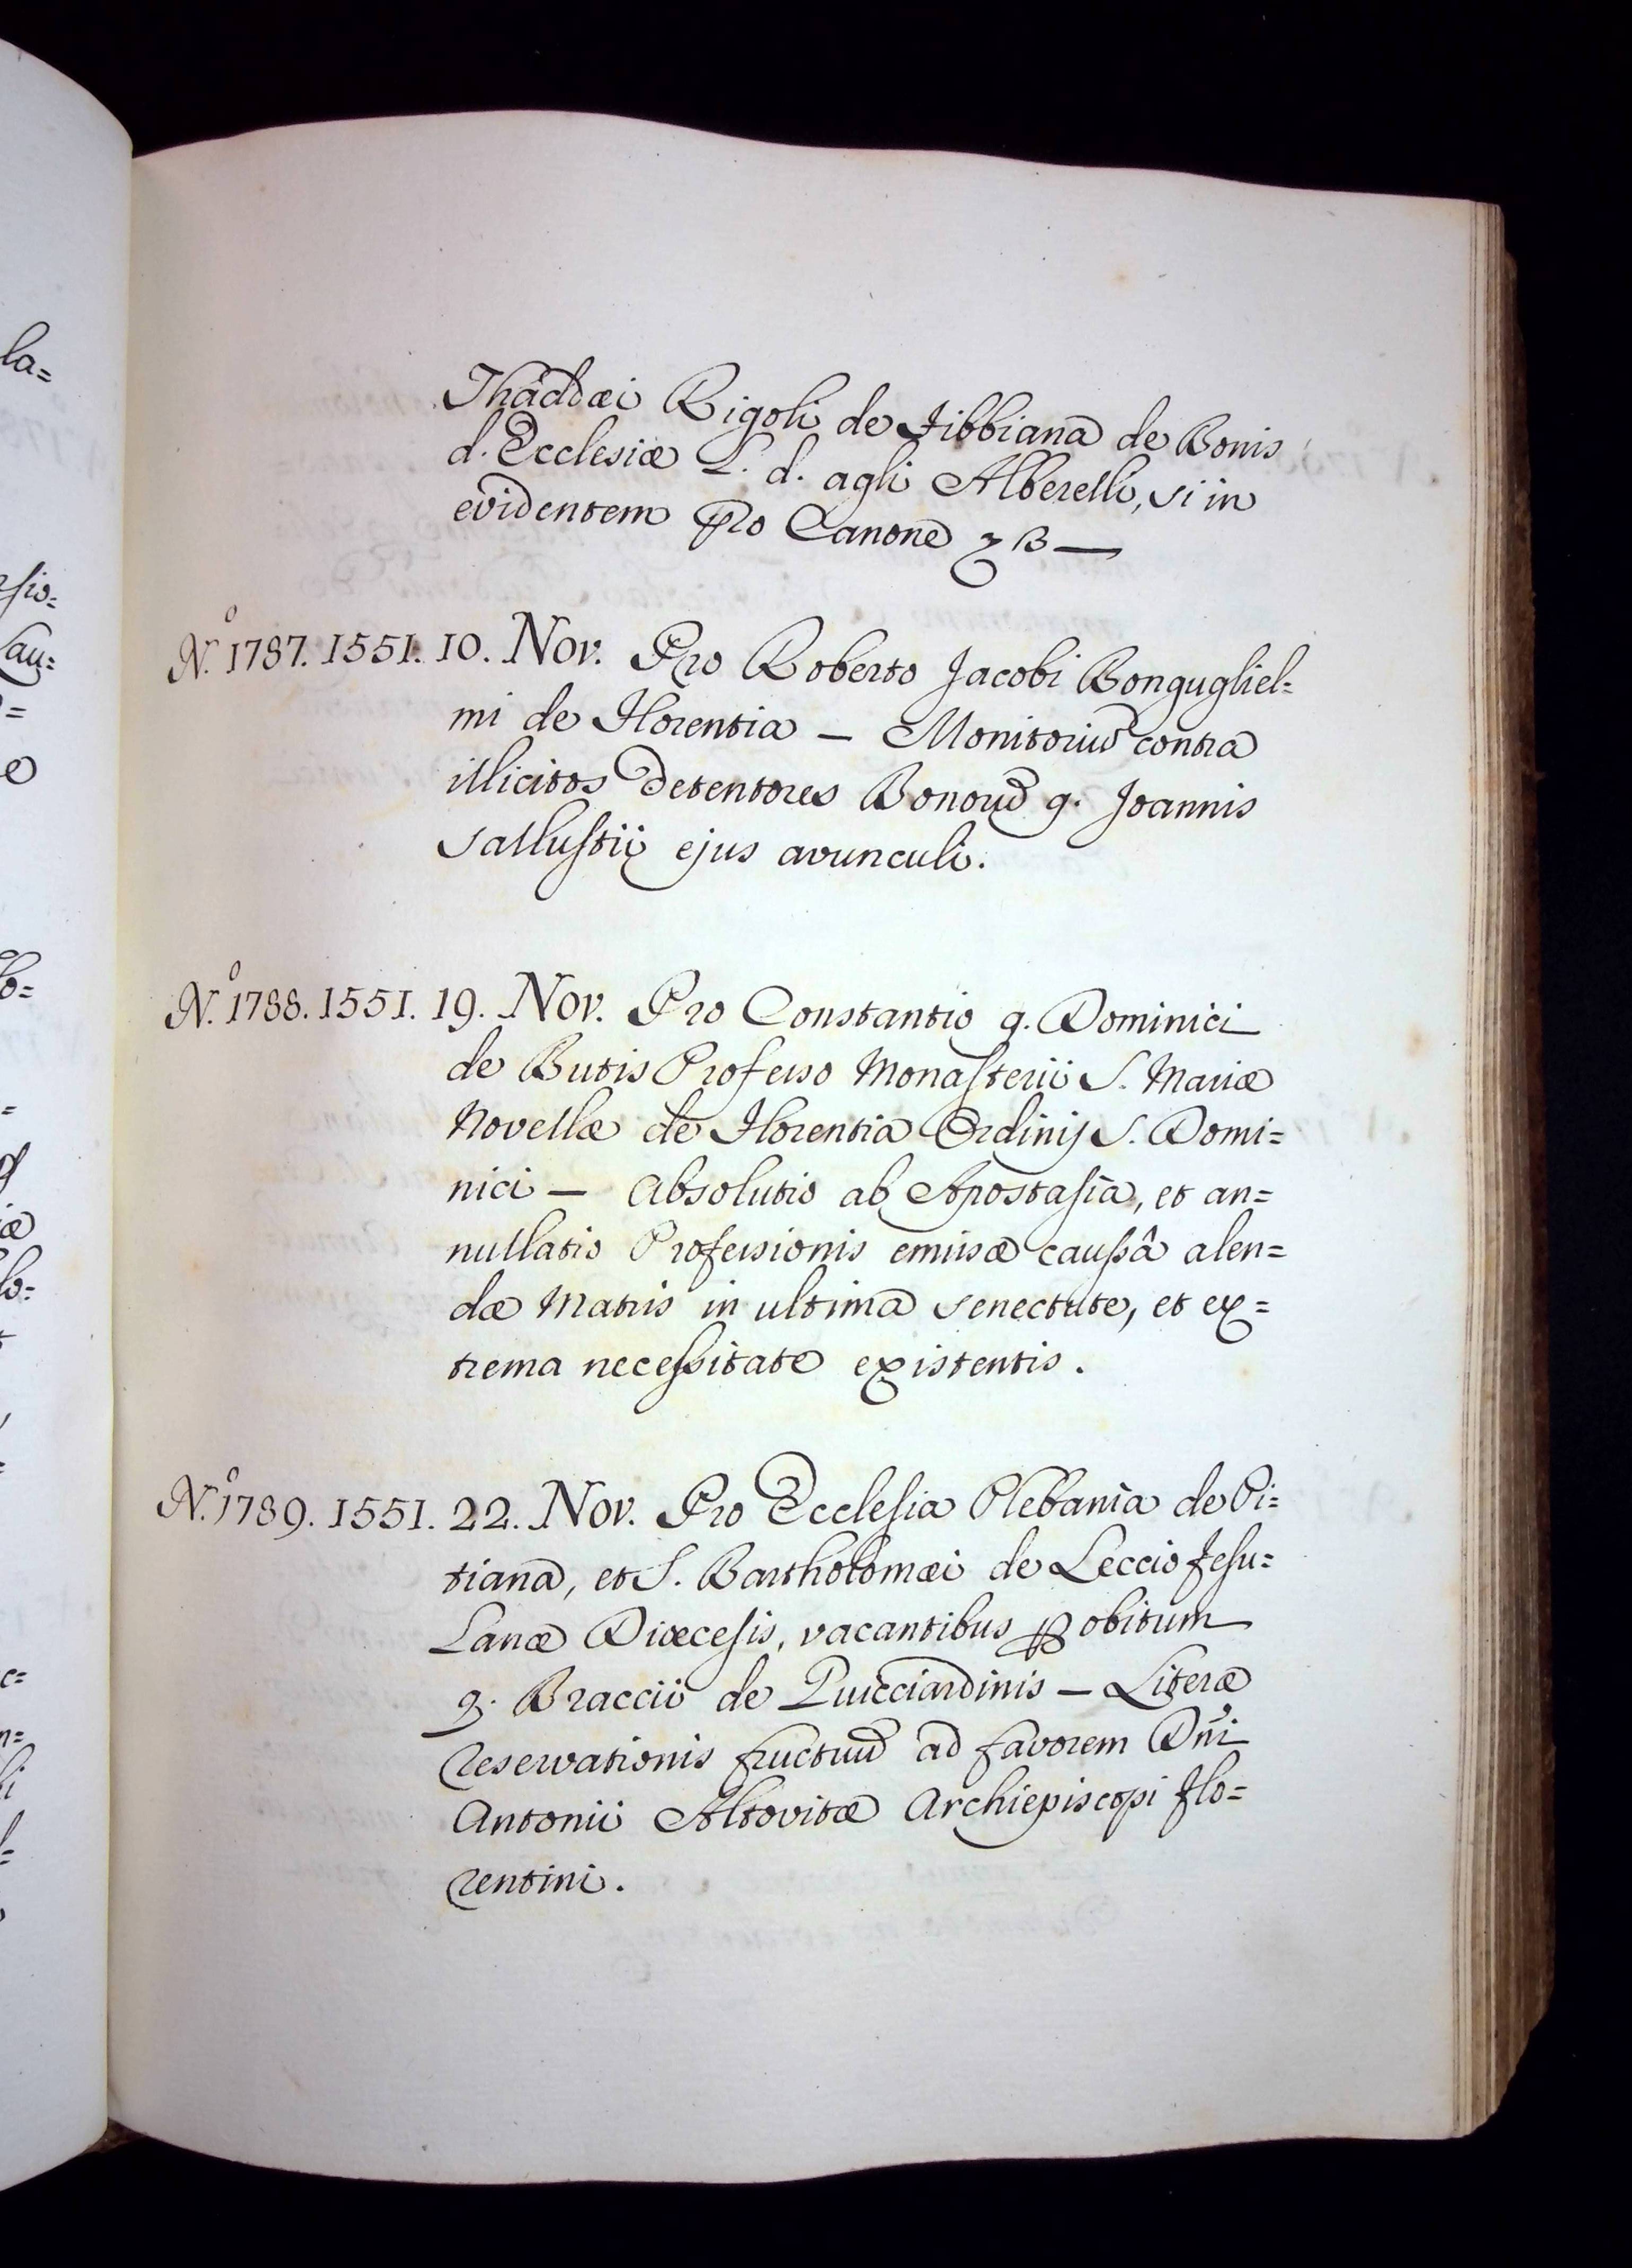 la=
Thaddæi Rigoli de Fibbiana de Bonis
d. Ecclesiæ L. d. agli Alberelli, si in
evidentem pro Canone
sio=
N.º 1787. 1551. 10. Nov. Pro Roberto Jacobi Bongugliel=
mi de Florentia — Monitoriũ contra
illicitos detentores Bonorũ q. Joannis
Sallustii ejus avunculi.
N.º 1788. 1551. 19. Nov. Pro Constantio q. Dominici
de Butis Professo Monasterii S. Mariæ
Novellæ de Florentia Ordinis S. Domi=
nici — Absolutio ab Apostasia, et an=
nullatio Professionis emissæ caussâ alen=
dæ Matris in ultima senectute, et ex=
trema necessitate existentis.
N.º 1789. 1551. 22. Nov. Pro Ecclesia Plebania de Pi=
tiana, et S. Bartholomæi de Leccio Fesu=
lanæ Diœcesis, vacantibus ꝑ obitum
q. Braccii de Guicciardinis — Literæ
reservationis fructuũ ad favorem Dñi
Antonii Altovitæ Archiepiscopi Flo=
rentini.